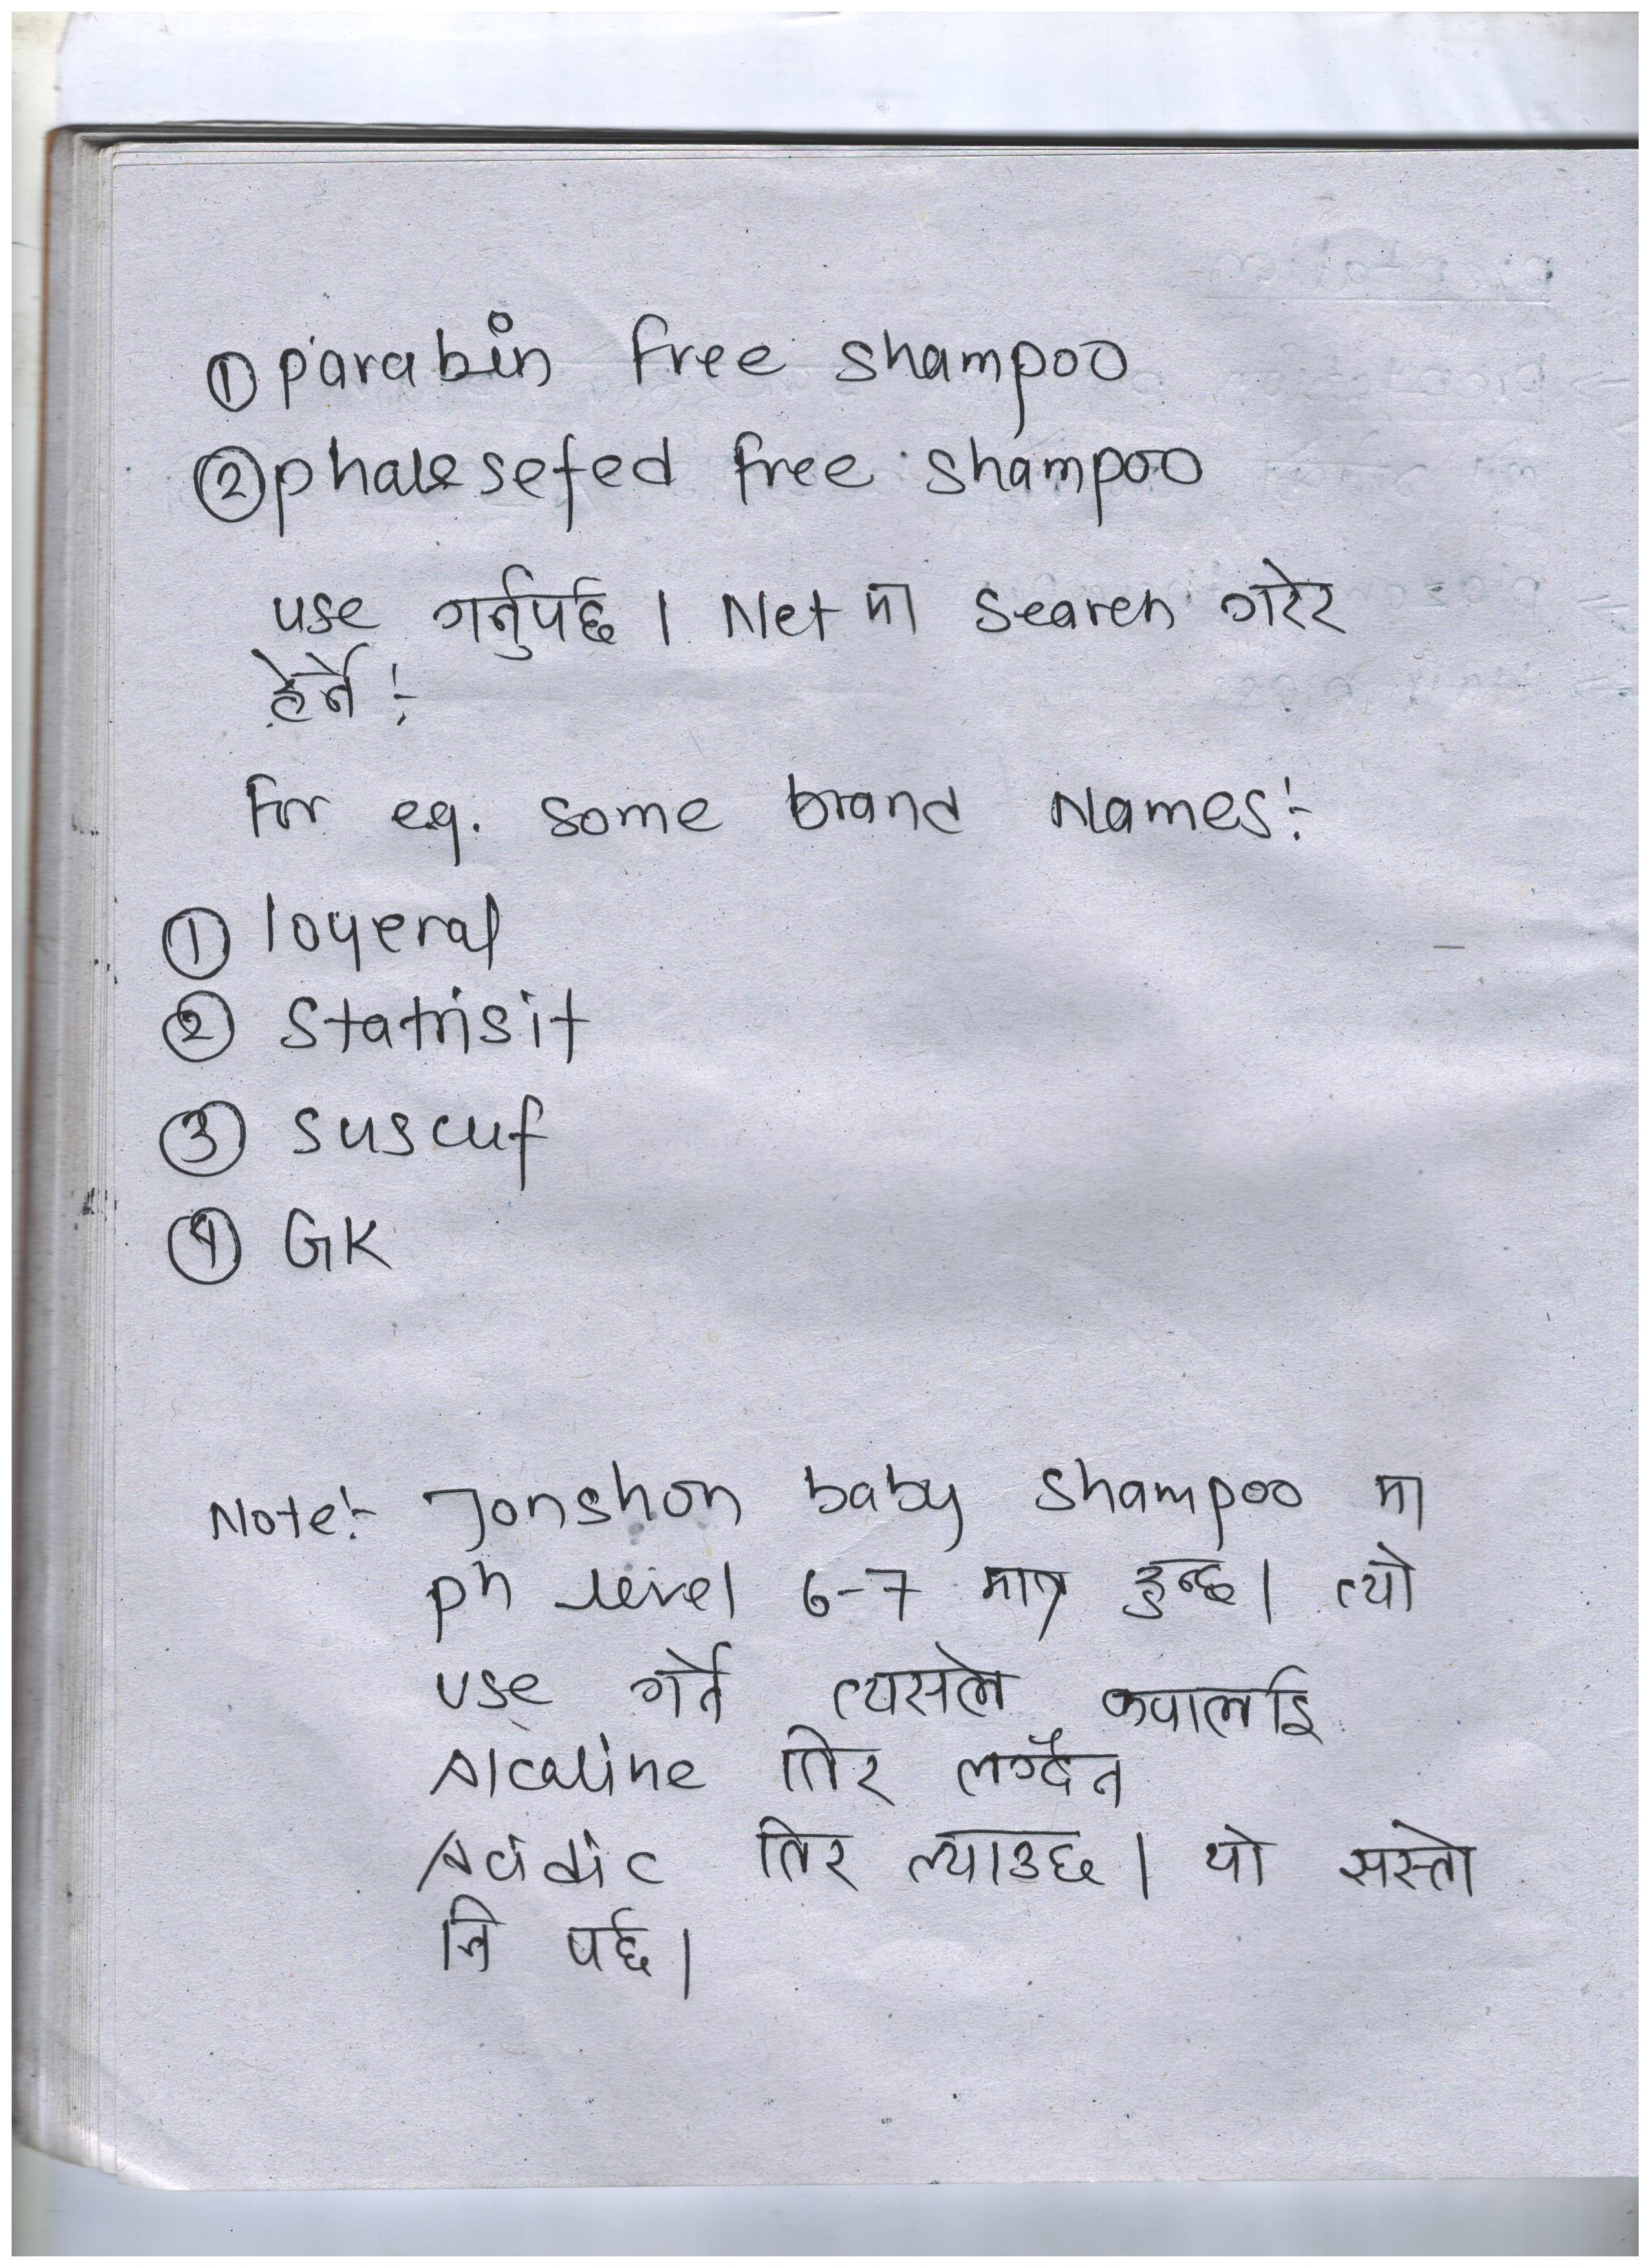 ① parabin free shampoo
② phalesefed free shampoo
use गर्नुपर्छ । Net मा Search गरेर
हेर्ने :-
For eg. some brand Names :-
① loyeral
② Statrisit
③ suscuf
④ GK
Note :- Jonshon baby shampoo मा
ph level 6-7 मात्र हुन्छ । त्यो
use गर्ने त्यसले कपाललाई
Alcaline तिर लग्दैन
Acidic तिर ल्याउछ । यो सस्तो
नि पर्छ ।